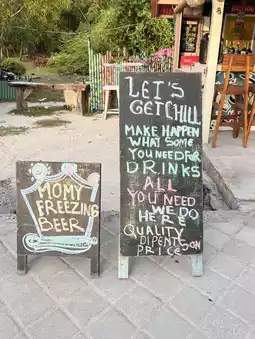 LET'S
GET CHILL
MAKE HAPPEN
WHAT SOME
YOU NEED FOR
DRINKS
ALL
YOU NEED
WE DO
HERE
QUALITY
DIPENTS ON
PRICE
MOMY
FREEZING
BEER